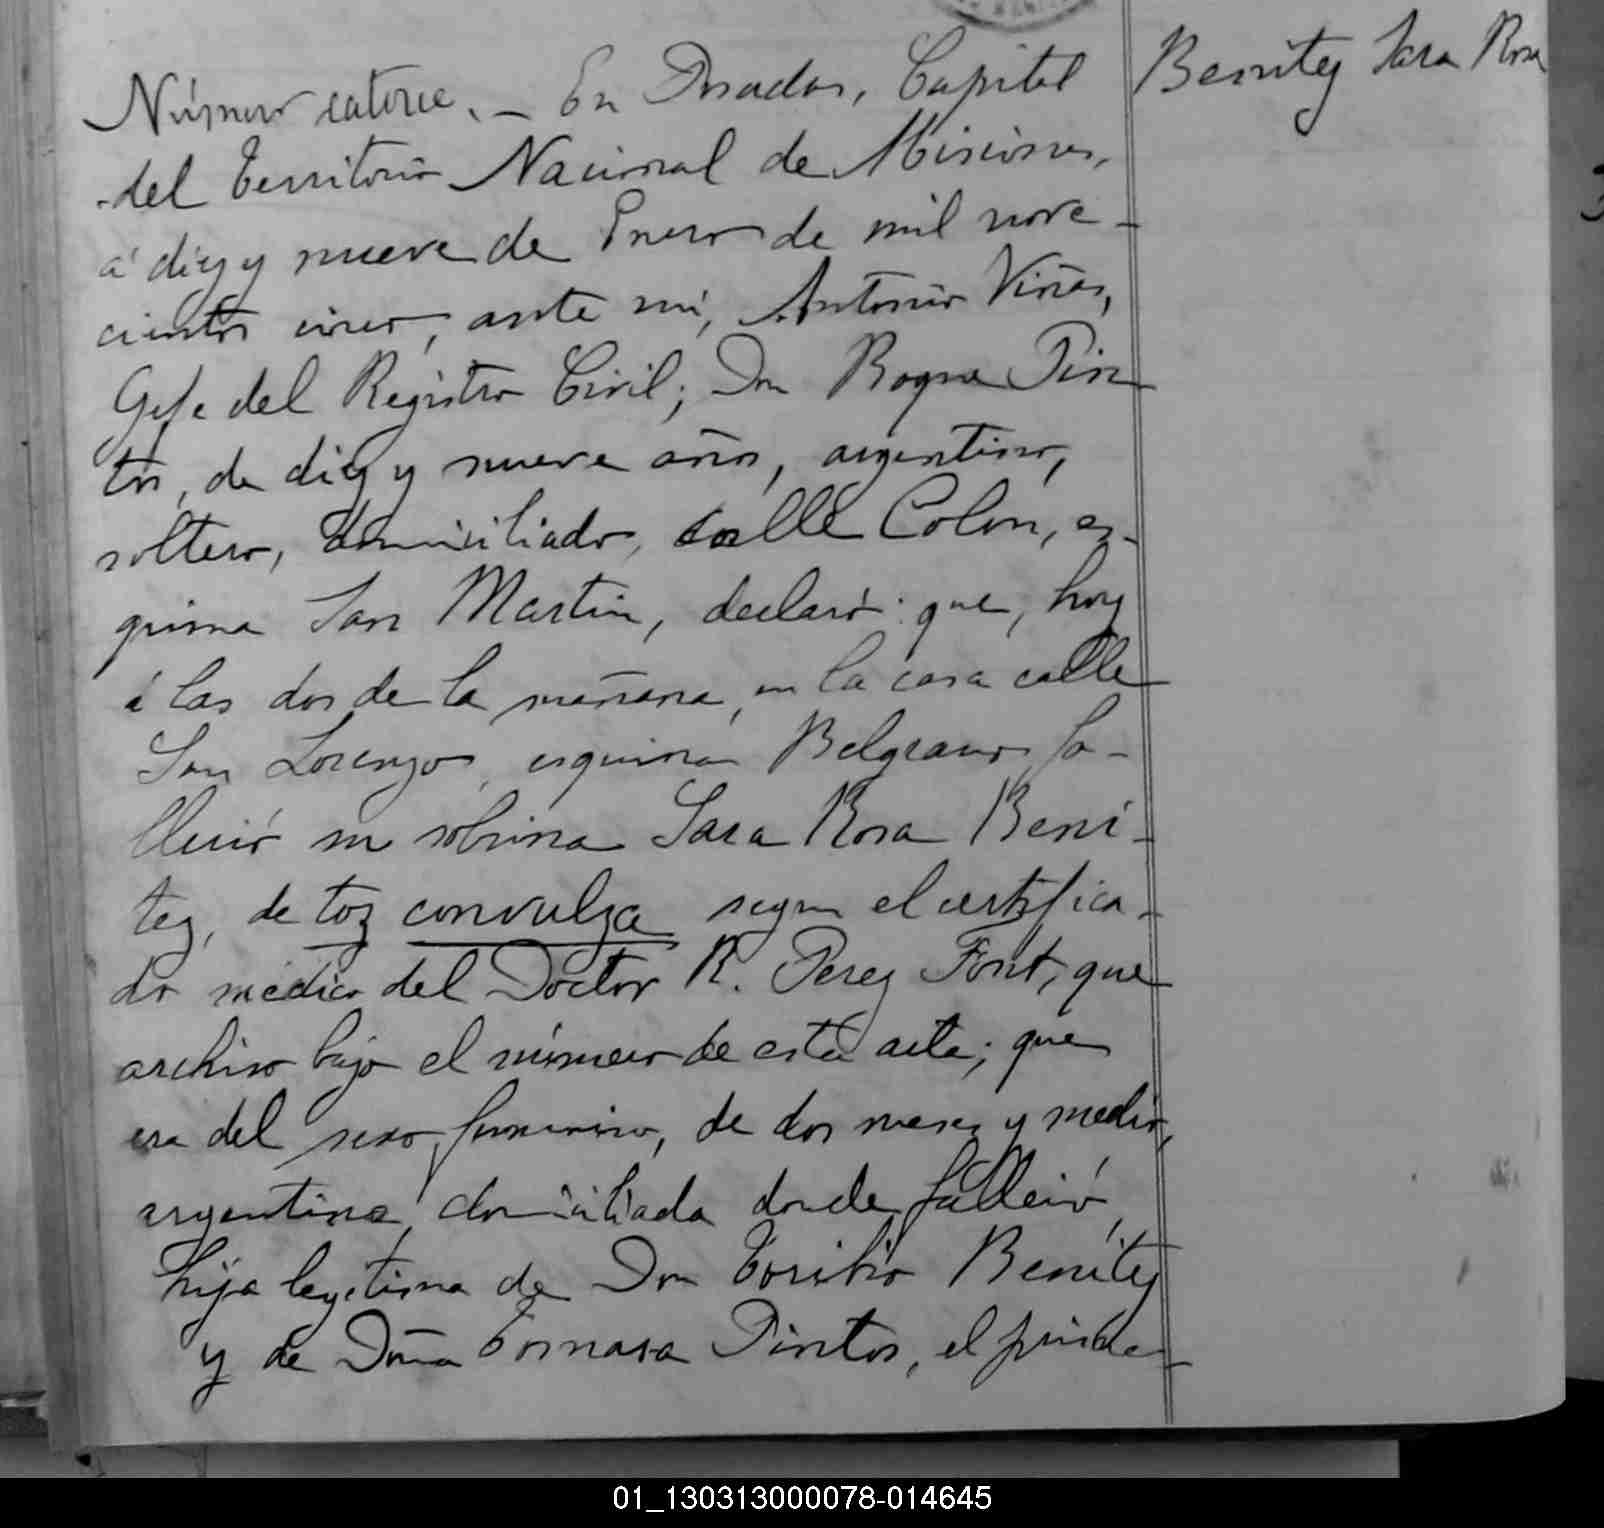 Benitez Sara Rosa
Número catorce. – En Posadas, Capital
del Territorio Nacional de Misiones,
á diez y nueve de Enero de mil nove-
cientos cinco, ante mí, Antonio Viñas,
Gefe del Registro Civil; Don Roque Pin
tos, de diez y nueve años, argentino,
soltero, domiciliado, calle Colon, es-
quina San Martin, declaró: que, hoy
á las dos de la mañana, en la casa calle
San Lorenzo, esquina Belgrano fa-
lleció su sobrina Sara Rosa Beni-
tez, de toz convulza segun el certifica-
do médico del Doctor R. Perez Font, que
archivo bajo el número de esta acta; que
era del sexo femenino, de dos meses y medio,
argentina, domiciliada donde falleció,
hija legitima de Don Toribio Benitez
y de Doña Tomasa Pintos, el prime-
01_130313000078-014645